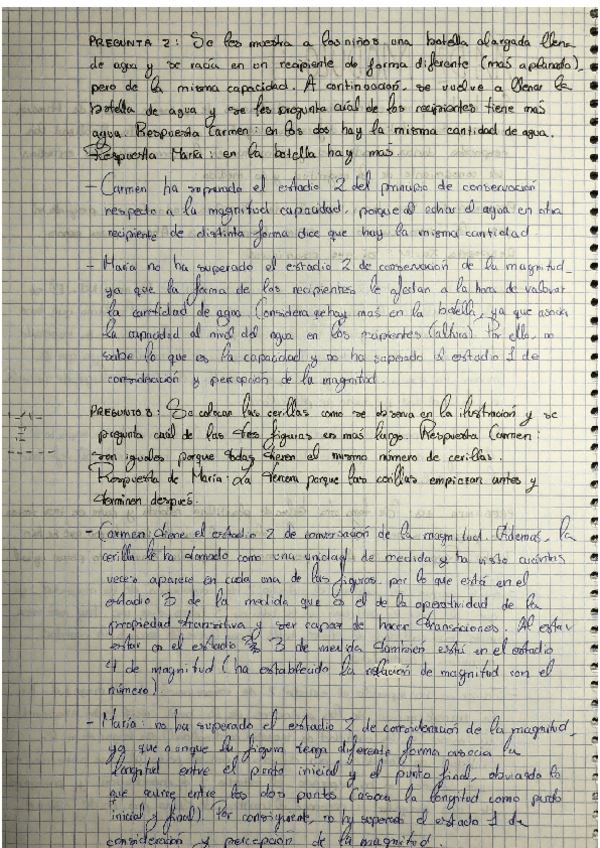 PREGUNTA 2: Se les muestra a los niños una botella alargada llena
de agua y se vacía en un recipiente de forma diferente (más aplanada),
pero de la misma capacidad. A continuación, se vuelve a llenar la
botella de agua y se les pregunta cuál de los recipientes tiene más
agua. Respuesta Carmen: en los dos hay la misma cantidad de agua.
Respuesta María: en la botella hay más.
- Carmen ha superado el estadio 2 del principio de conservación
respecto a la magnitud capacidad, porque al echar el agua en otro
recipiente de distinta forma dice que hay la misma cantidad.
- María no ha superado el estadio 2 de conservación de la magnitud,
ya que la forma de los recipientes le afectan a la hora de valorar
la cantidad de agua. Considera que hay más en la botella, ya que asocia
la capacidad al nivel del agua en los recipientes (altura). Por ello, no
sabe lo que es la capacidad y no ha superado el estadio 1 de
consideración y percepción de la magnitud.
PREGUNTA 3: Se colocan las cerillas como se observa en la ilustración y se
pregunta cuál de las tres figuras es más larga. Respuesta Carmen:
son iguales porque todas tienen el mismo número de cerillas.
Respuesta de María: la tercera porque las cerillas empiezan antes y
terminan después.
- Carmen: tiene el estadio 2 de conversación de la magnitud. Además, la
cerilla la ha tomado como una unidad de medida y ha visto cuántas
veces aparece en cada una de las figuras, por lo que está en el
estadio 3 de la medida que es el de la operatividad de la
propiedad transitiva y ser capaz de hacer transiciones. Al estar
estar en el estadio 3 de medida también está en el estadio
4 de magnitud (ha establecido la relación de magnitud con el
número)
- María: no ha superado el estadio 2 de consideración de la magnitud,
ya que aunque la figura tenga diferente forma asocia la
longitud entre el punto inicial y el punto final, obviando lo
que ocurre entre los dos puntos (asocia la longitud como punto
inicial y final). Por consiguiente, no ha superado el estadio 1 de
consideración y percepción de la magnitud.